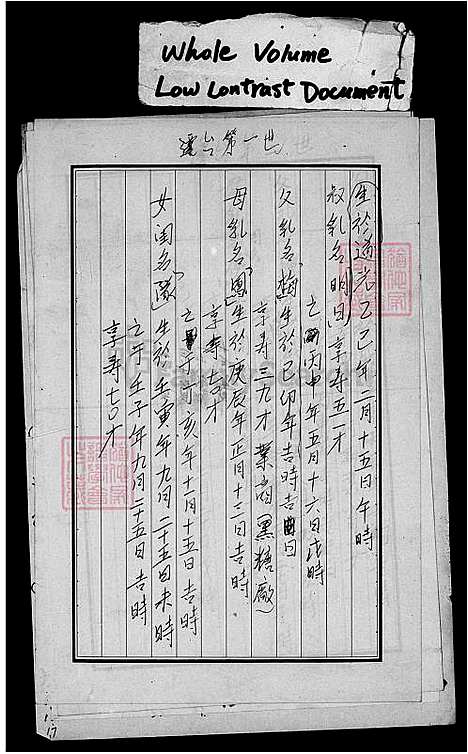 Whole Volume
Low Contrast Document
遷台第一世
生於道光乙巳年二月十五日午時
叔乳名明日享寿五一才
亡丙申年五月十六日戌時
父乳名梅生於己卯年吉時吉日
享寿三九才業商(黑糖廠)
母乳名鳳生於庚辰年正月十三日吉時
享寿七0才
亡于亥年十一月十五日吉時
女閨名生於壬寅年九月二十五日未時
亡于壬子年九月二十五日吉時
享寿七0才
17